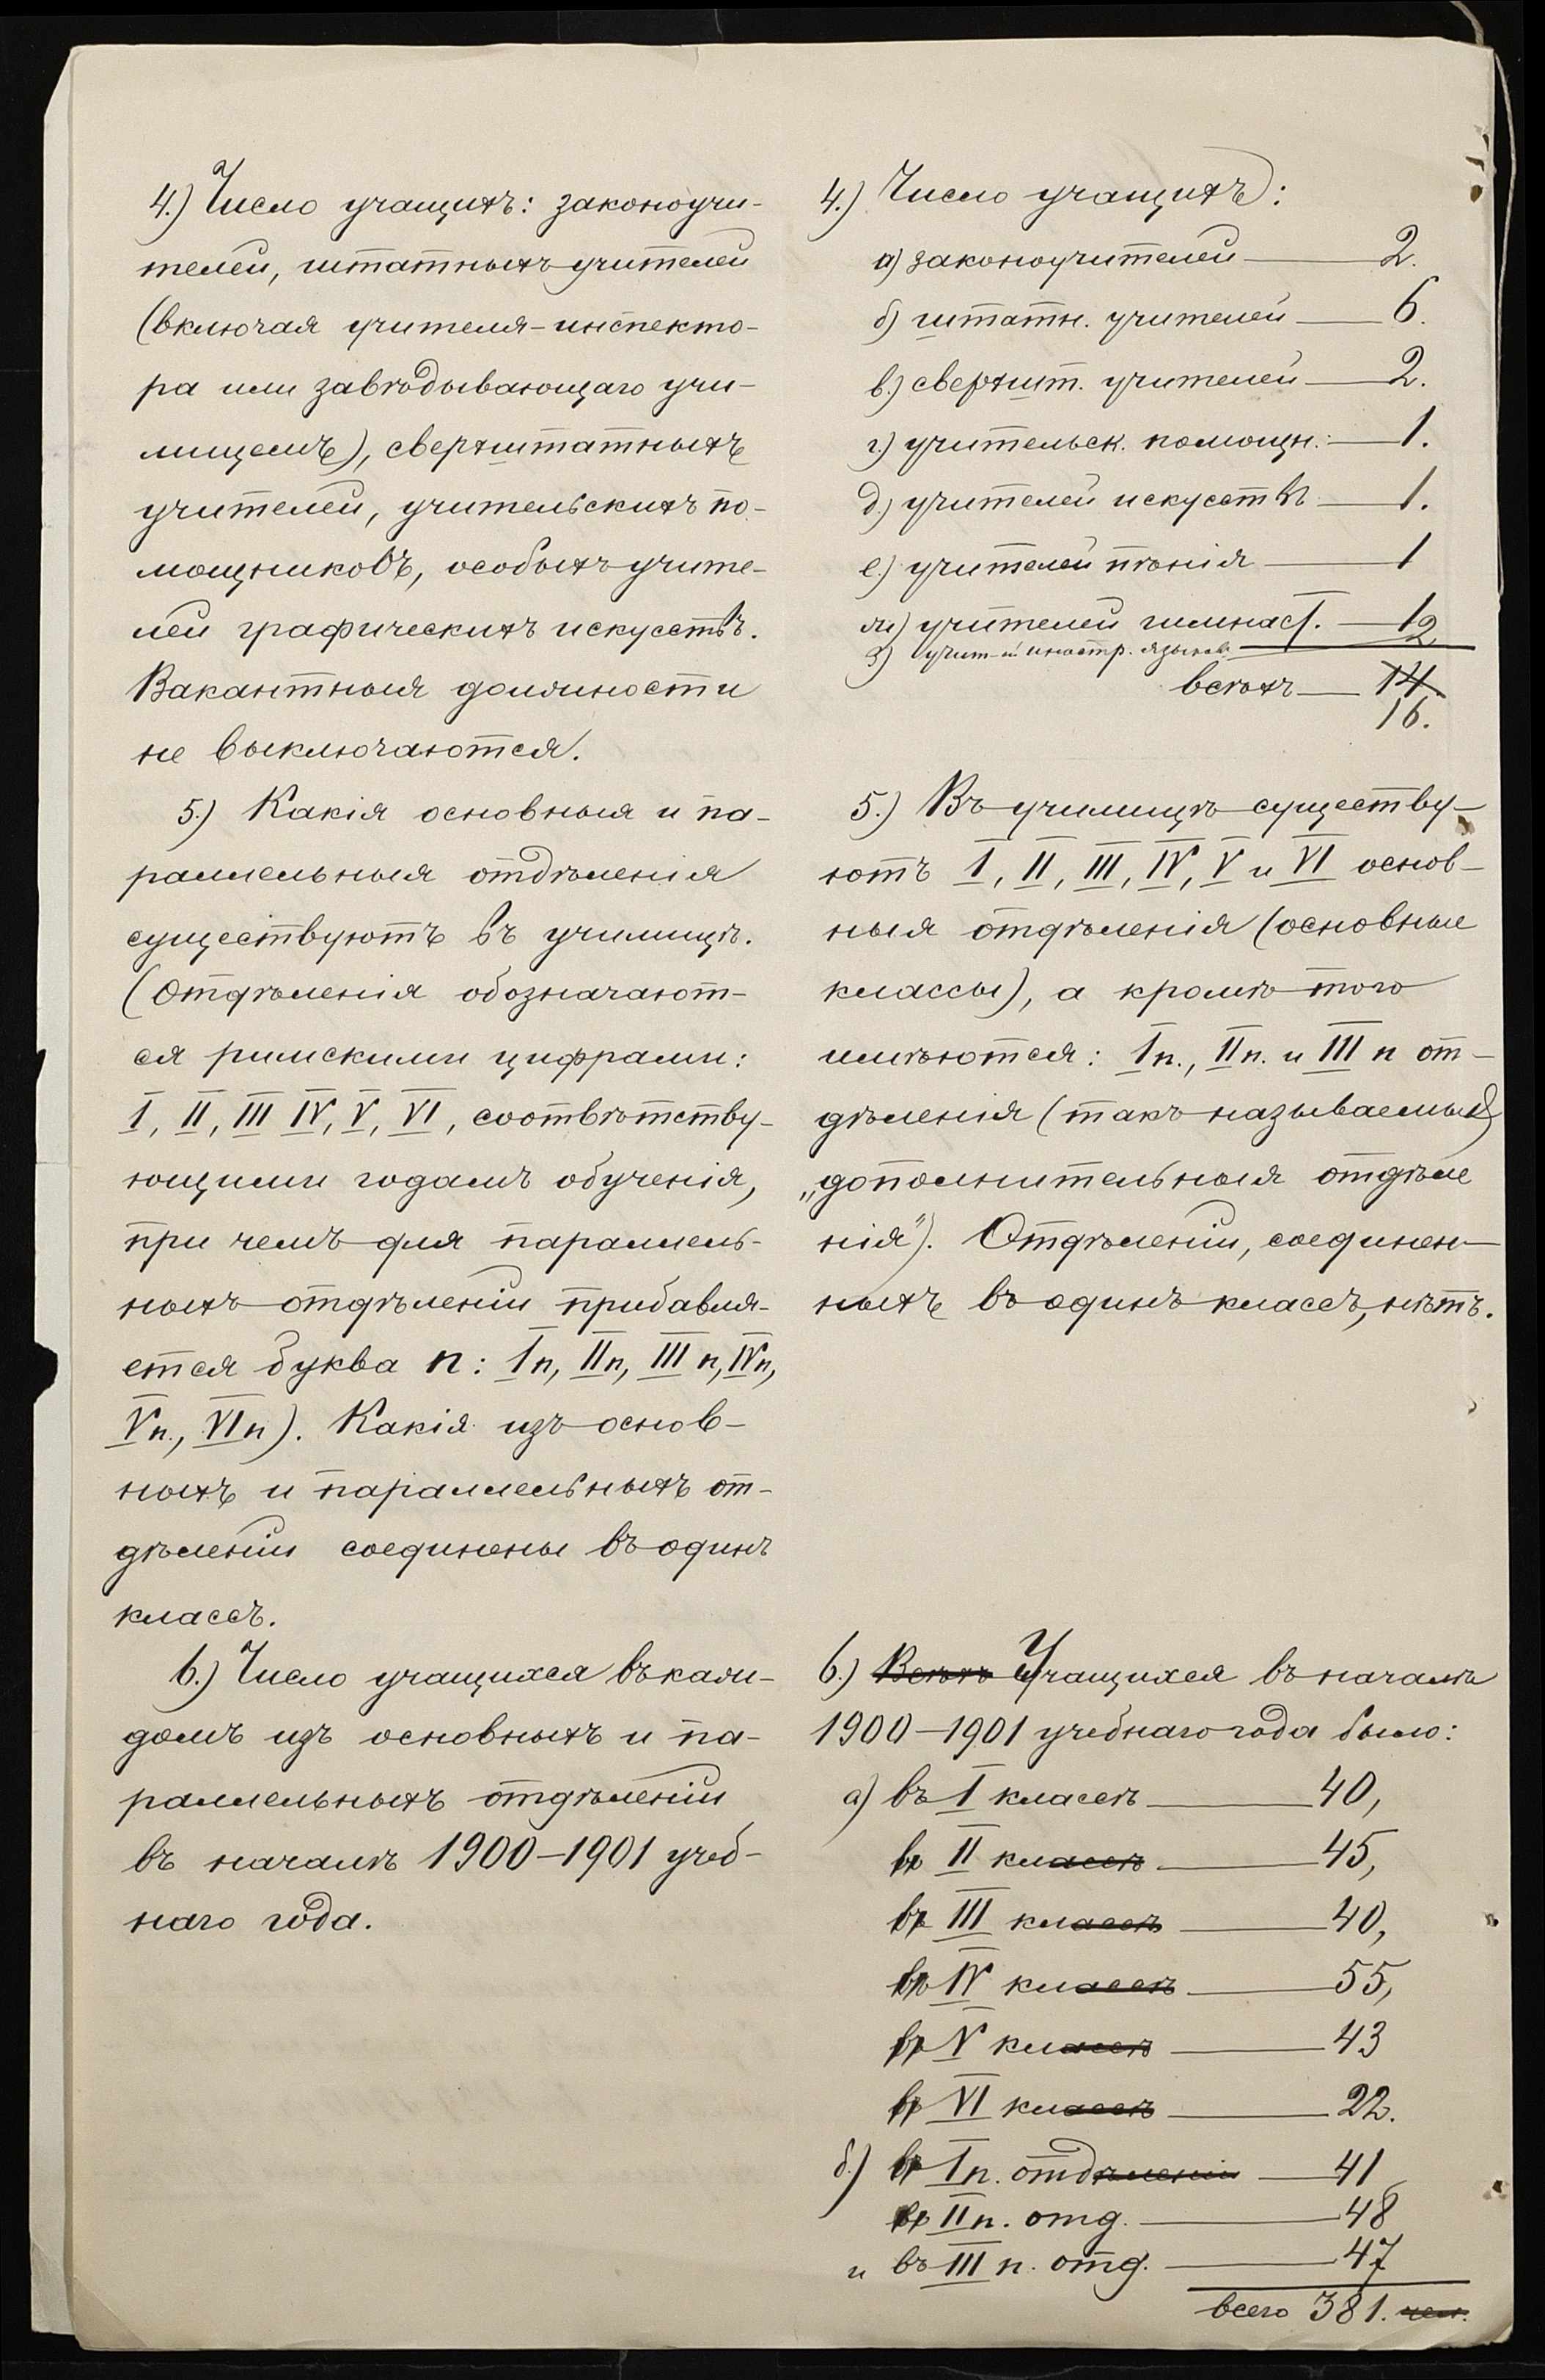 4.) Число учащихъ: законоучи-
телей, штатныхъ учителей
(включая учителя-инспекто-
ра или завѣдывающаго учи-
лищемъ), сверхштатныхъ
учителей, учительскихъ по-
мощниковъ, особыхъ учите-
лей графическихъ искусствъ.
Вакантныя должности
не выключаются.
5.) Какія основныя и па-
раллельныя отдѣленія
существуютъ въ училищѣ.
(Отдѣленія обозначают-
ся римскими цифрами:
I, II, III IV, V, VI, соотвѣтству-
ющими годамъ обученія,
при чемъ для параллель-
ныхъ отдѣленій прибавля-
ется буква п: Iп, IIп, III п, IVп,
Vп., VIп). Какія изъ основ-
ныхъ и параллельныхъ от-
дѣленій соединены въ одинъ
классъ.
6.) Число учащихся въ каж-
домъ изъ основныхъ и па-
раллельныхъ отдѣленій
въ началѣ 1900-1901 учеб-
наго года.
4.) Число учащихъ:
а) законоучителей — 2.
б) штатн. учителей — 6.
в.) сверхшт. учителей — 2.
г.) учительск. помощн. — 1.
д.) учителей искусствъ — 1.
е.) учителей пѣнія — 1
ж) учителей гимнаст. — 1
з) учит-й иностр. языковъ — 2
всѣхъ — 14.
16.
5.) Въ училищѣ существу-
ютъ I, II, III, IV, V и VI основ-
ныя отдѣленія (основные
классы), а кромѣ того
имѣются: Iп., IIп. и III п от-
дѣленія (такъ называемыя
„дополнительныя отдѣле
нія"). Отдѣленій, соединен-
ныхъ въ одинъ классъ, нѣтъ.
6.) Всѣхъ Учащихся въ началѣ
1900-1901 учебнаго года было:
а) въ I классѣ — 40,
въ II классѣ — 45,
въ III классѣ — 40,
въ IV классѣ — 55,
въ V классѣ — 43
въ VI классѣ — 22.
б.) въ Iп. отдѣленіи — 41
въ IIп. отд. — 48
и въ III п. отд. — 47
всего 381. чел.